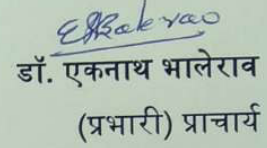 डॉ. एकनाथ भालेराव
(प्रभारी) प्राचार्य